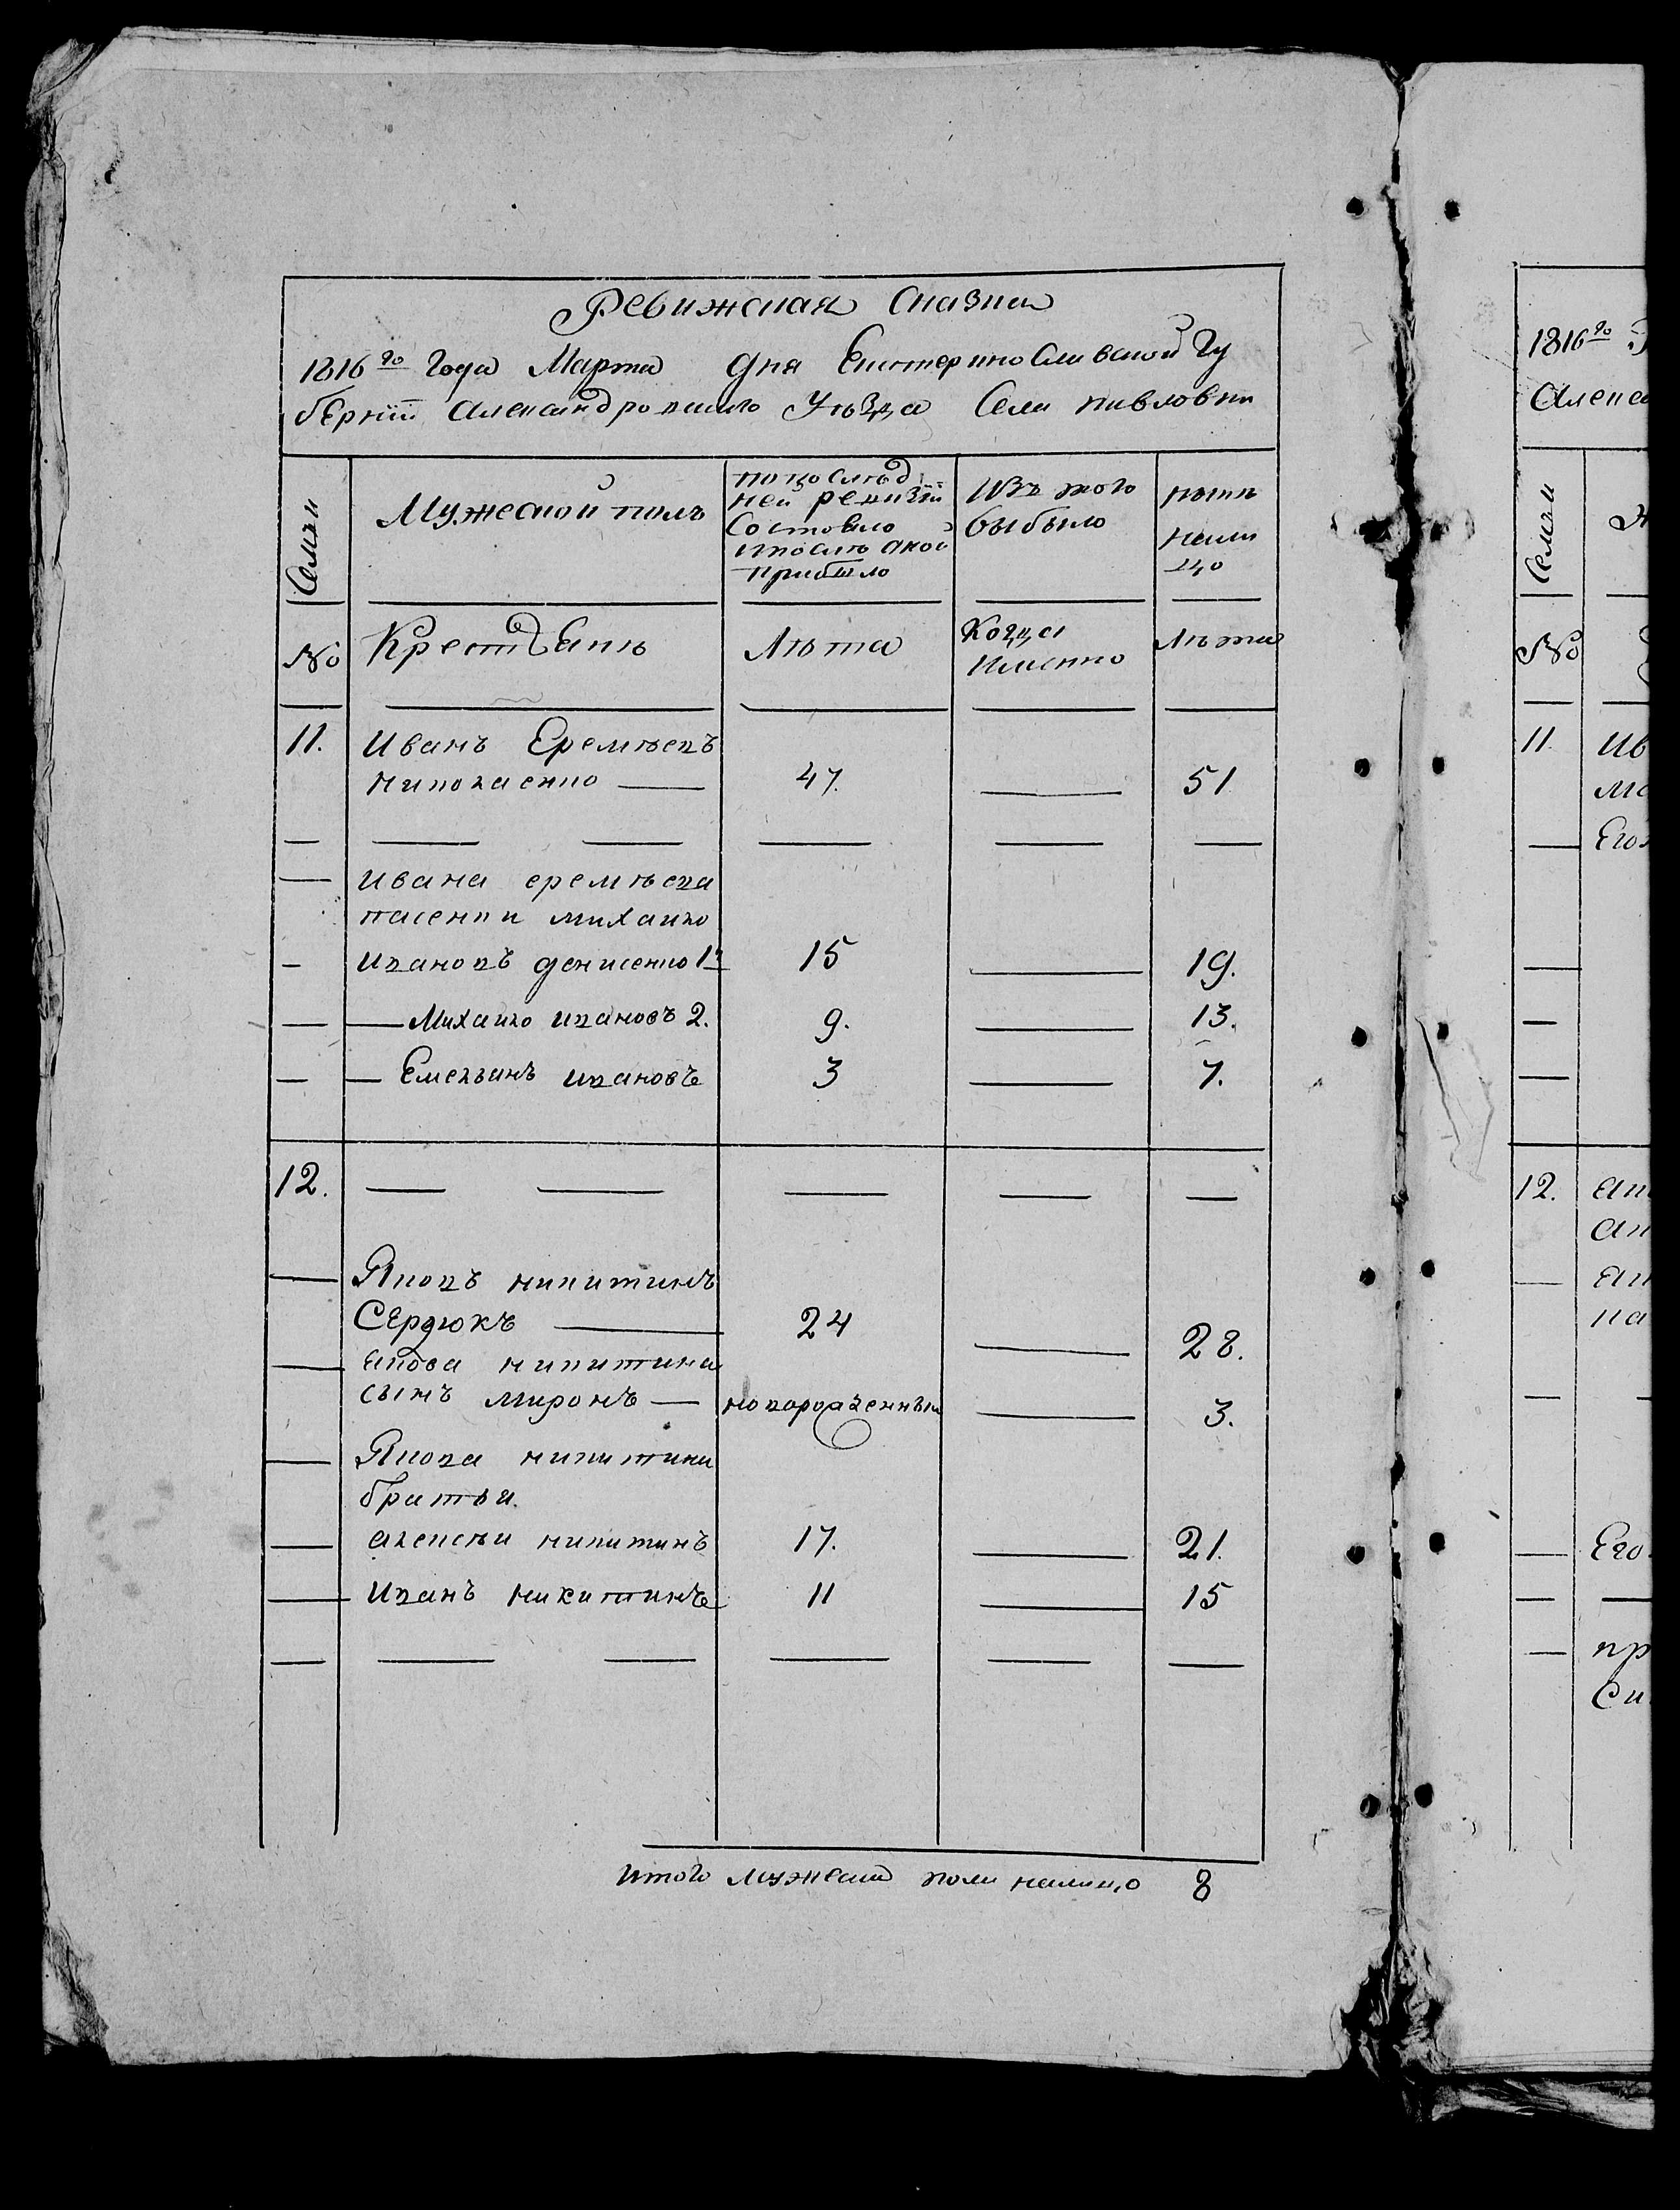 Ревижская Сказка
1816го Года Марта дня Екатеринославской Гу
берніи Александровскаго Уѣзда Села павловки
Семьи
Мужеской полъ
по послѣд
ней ревизіи
Состояло
и послѣ оной
прибыло
Изъ того
выбыло
нынѣ
на ли
цо
№
Крестьянѣ
Лѣта
Когда
Именно
Лѣта
11. Иванъ Еремѣевъ
Николаенко — 47. — 51
— — — — — —
— ивана еремѣева
пасенки михайло
— ивановъ денисенко 1й 15 — 19.
— — Михайло ивановъ 2. 9. — 13.
— — Емельянъ ивановъ 3 — 7.
12. — — — — —
— Яковъ никитинъ
Сердюкъ — 24 — 28.
— якова никитина
сынъ миронъ — новорожденный — 3.
— Якова никитина
братья.
— алексѣй никитинъ 17. — 21.
— иванъ никитинъ 11 — 15
— — — — — —
итого мужеска пола налицо 8
1816го
Алекса
Семьи
№
11 Ив
Его
12.
Его
пр
Си